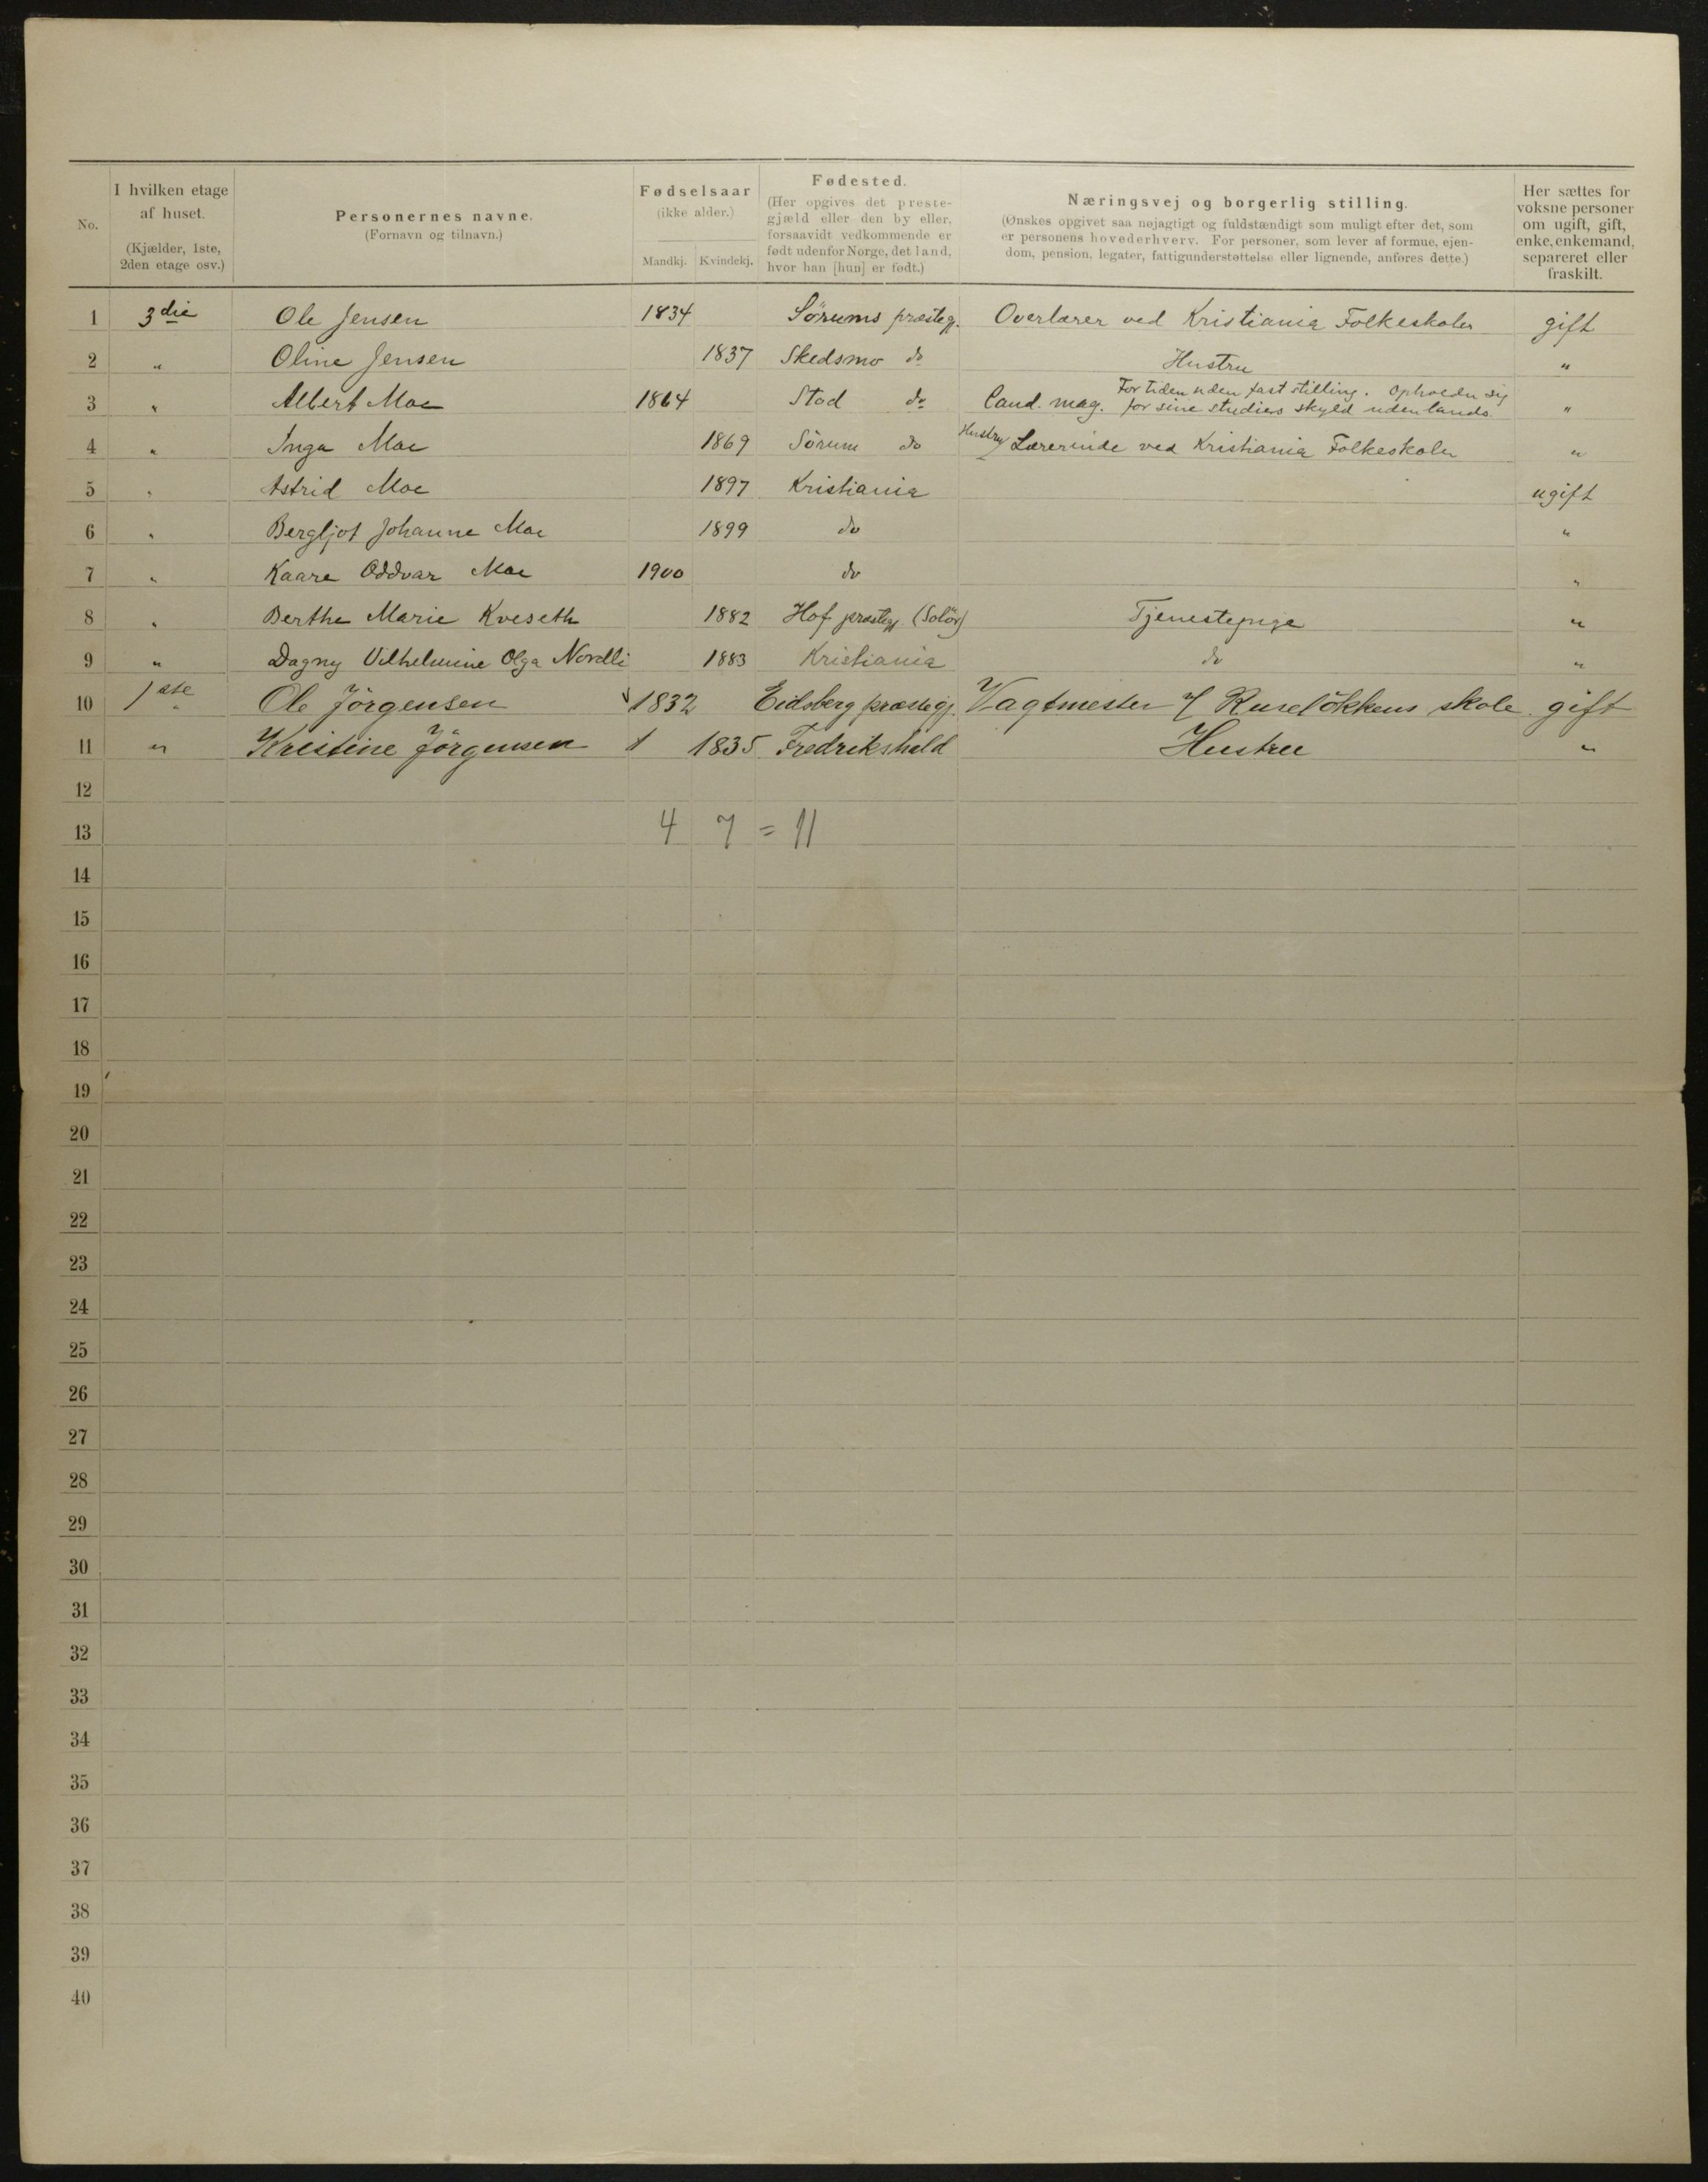 No.
I hvilken etage af huset. (Kjælder, 1ste, 2den etage osv.)
Personernes navne. (Fornavn og tilnavn.)
Fødselsaar (ikke alder.)
Mandkj. Kvindekj.
Fødested. (Her opgives det prestegjæld eller den by eller, forsaavidt vedkommende er født udenfor Norge, det land, hvor han [hun] er født.)
Næringsvej og borgerlig stilling.
(Ønskes opgivet saa nøjagtigt og fuldstændigt som muligt efter det, som
er personens hovederhverv. For personer, som lever af formue, ejen-
dom, pension, legater, fattigunderstøttelse eller lignende, anføres dette.)
Her sættes for voksne personer om ugift, gift, enke, enkemand, separeret eller fraskilt.
1 3die Ole Jensen 1834 Sørums præstegj. Overlærer ved Kristiania Folkeskoler gift
2 " Oline Jensen 1837 Skedsmo do Hustru "
3 " Albert Moe 1864 Stod do Cand. mag. For tiden uden fast stilling. Opholder sig for sine studiers skyld udenlands. "
4 " Inga Moe 1869 Sörum do Hustru Lærerinde ved Kristiania Folkeskoler "
5 " Astrid Moe 1897 Kristiania ugift
6 " Bergljot Johanne Moe 1899 do "
7 " Kaare Oddvar Moe 1900 do "
8 " Berthe Marie Kveseth 1882 Hof præstegj. (Solör) Tjenestepige "
9 " Dagny Vilhelmine Olga Nordli 1883 Kristiania do "
10 1ste Ole Jörgensen 1832 Eidsberg præstegj. Vagtmester v/ Ruselökkens skole gift
11 " Kristine Jörgensen 1835 Fredrikshald Hustru "
12
13 4 7 = 11
14
15
16
17
18
19
20
21
22
23
24
25
26
27
28
29
30
31
32
33
34
35
36
37
38
39
40